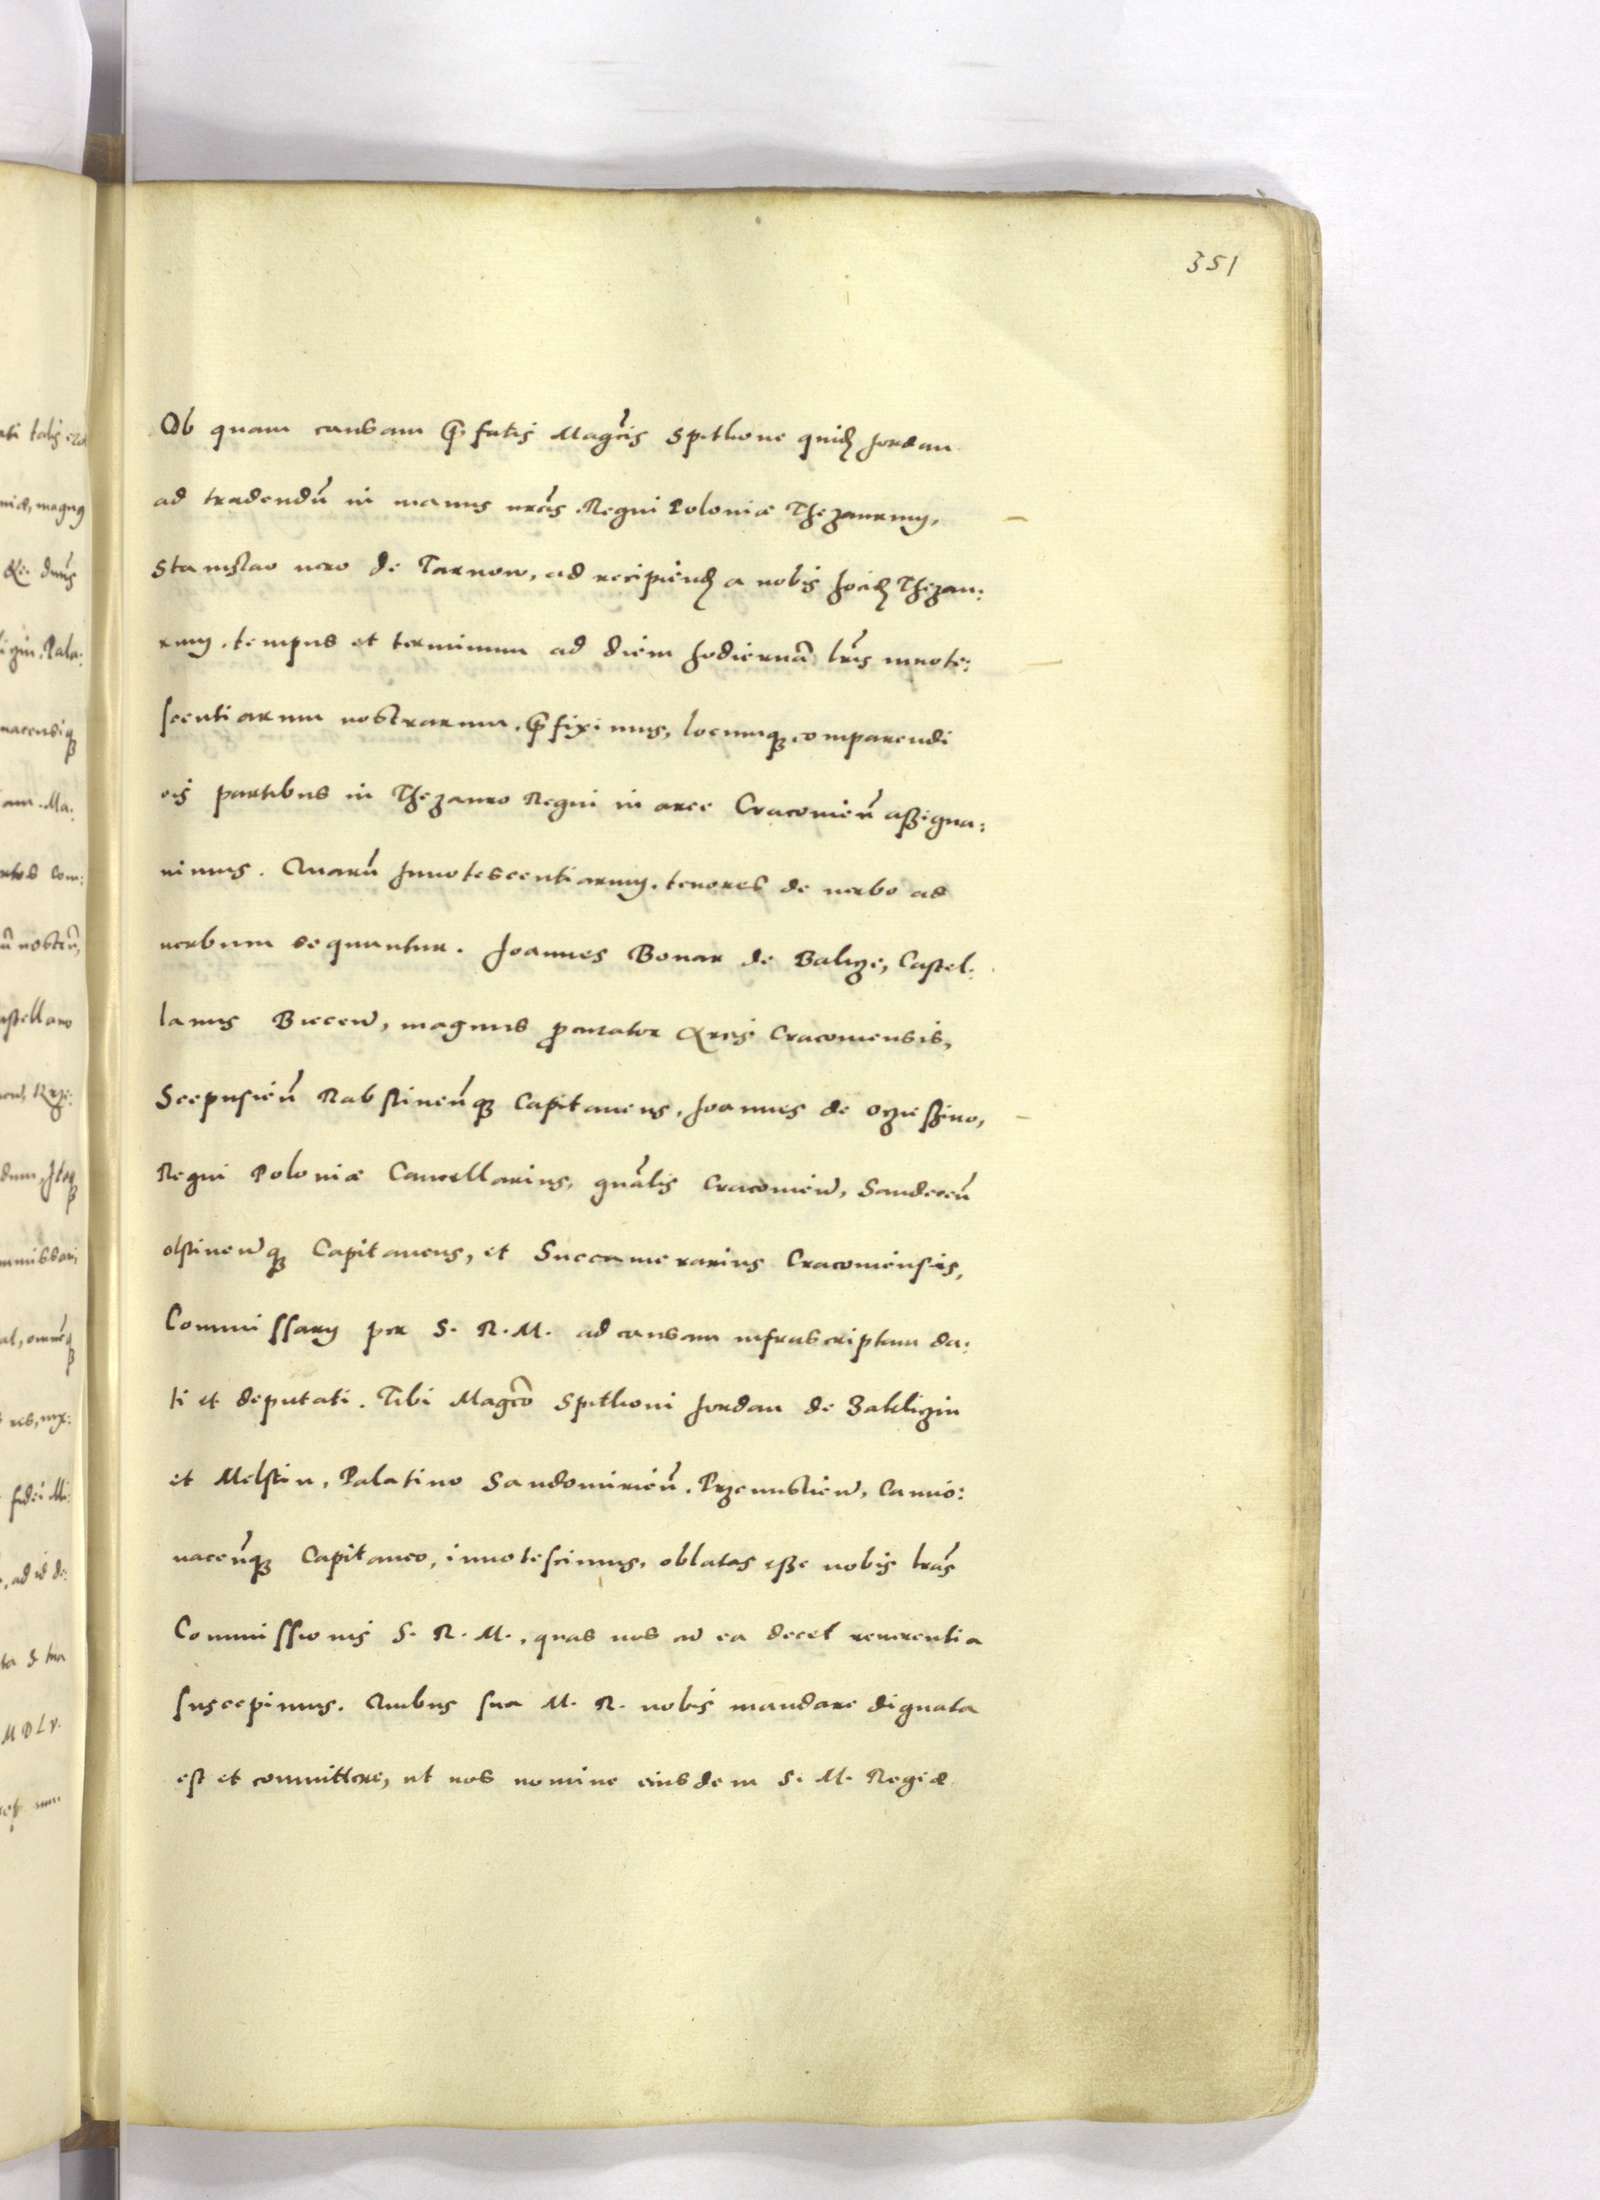 351
Ob quam causam p̄fatis Mag̃cis Spithone quidẽ Jordan
ad tradendũ in manus nr̃as Regni Poloniæ Thezaurum,
Stanislao uero de Tarnow, ad recipiendũ a nobis hoc Thezau:
rum, tempus et terminum ad diem hodiernã lr̃is innote:
scentiarum nostrarum, p̄fiximus, locumq comparendi
eis partibus in Thezauro Regni in arce Cracouien̄ assigna:
uimus. Quarũ Innotescentiarum, tenores de uerbo ad
uerbum sequuntur. Joannes Bonar de Balicze, Castel:
lanus Biecen̄, magnus procurator Arcis Cracouiensis,
Scepusien̄ Rabstinen̄q Capitaneus, Joannes de Oczieszino,
Regni Poloniæ Cancellarius, gnãlis Cracouien̄, Sandecen̄
olstinen̄q Capitaneus, et Succamerarius Cracouiensis,
Commissarij per S. R. M. ad causam infrascriptam da:
ti et deputati. Tibi Mag̃co Spithoni Jordan de Zakliczin
et Melstin, Palatino Sandomirien̄, Przemislien̄, Camio:
nacen̄q Capitaneo, innotescimus, oblatas esse nobis lr̃as
Commissionis S. R. M., quas nos ad ea decet reuerentia
suscepimus. Quibus sua M. R. nobis mandare dignata
est et committere, ut nos nomine eiusdem S. M. Regiæ